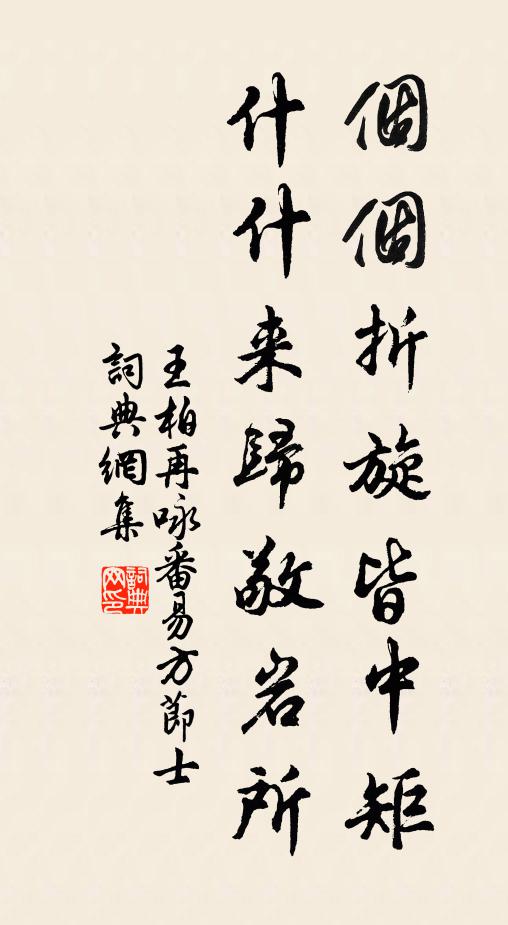 個個折旋皆中矩
什什来歸敬岩所
王柏再咏番易方節士
詞典網集
詞典
网印